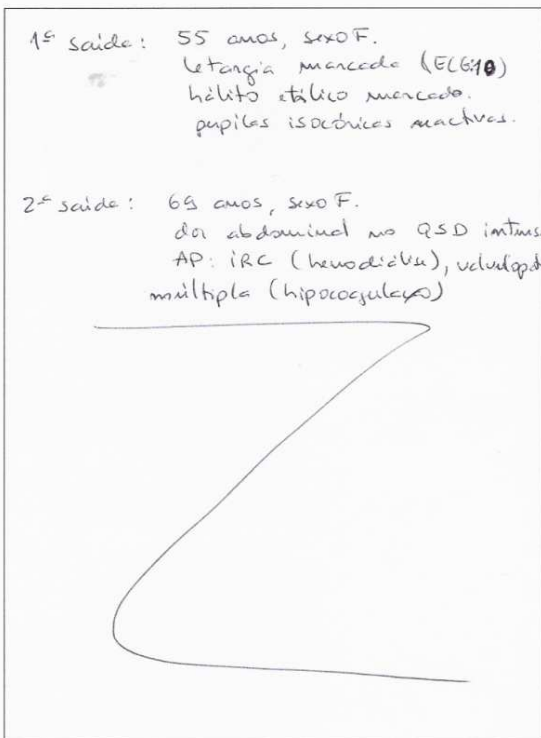 1ª saída: 55 anos, sexo F.
letargia marcada (ECG:10)
hálito etílico marcado.
pupilas isocóricas reactivas.
2ª saída: 69 anos, sexo F.
dor abdominal no QSD intensa
AP: IRC (hemodiálise),
múltipla (hipocoagulação)